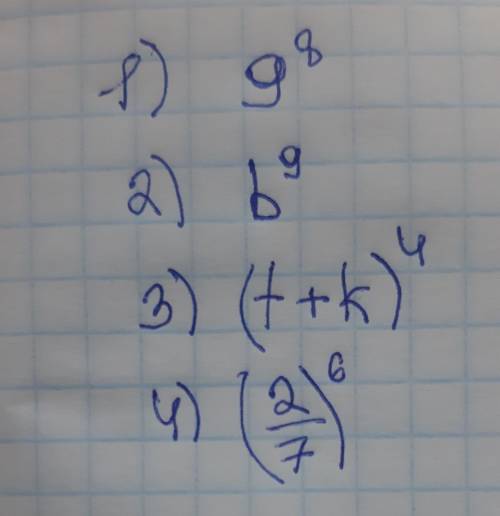 1) 9⁸
2) b⁹
3) (t+k)⁴
4) (2/7)⁶